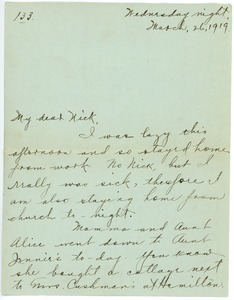 133.
Wednesday night,
March, 26, 1919
My dear Nick,
I was lazy this
afternoon and so stayed home
from work. No Nick, but I
really was sick, therefore I
am also staying home from
church to-night.
Mamma and Aunt
Alice went down to Aunt
Jennie's to-day. You know
she bought a cottage next
to Mrs. Cushman's at Hamilton